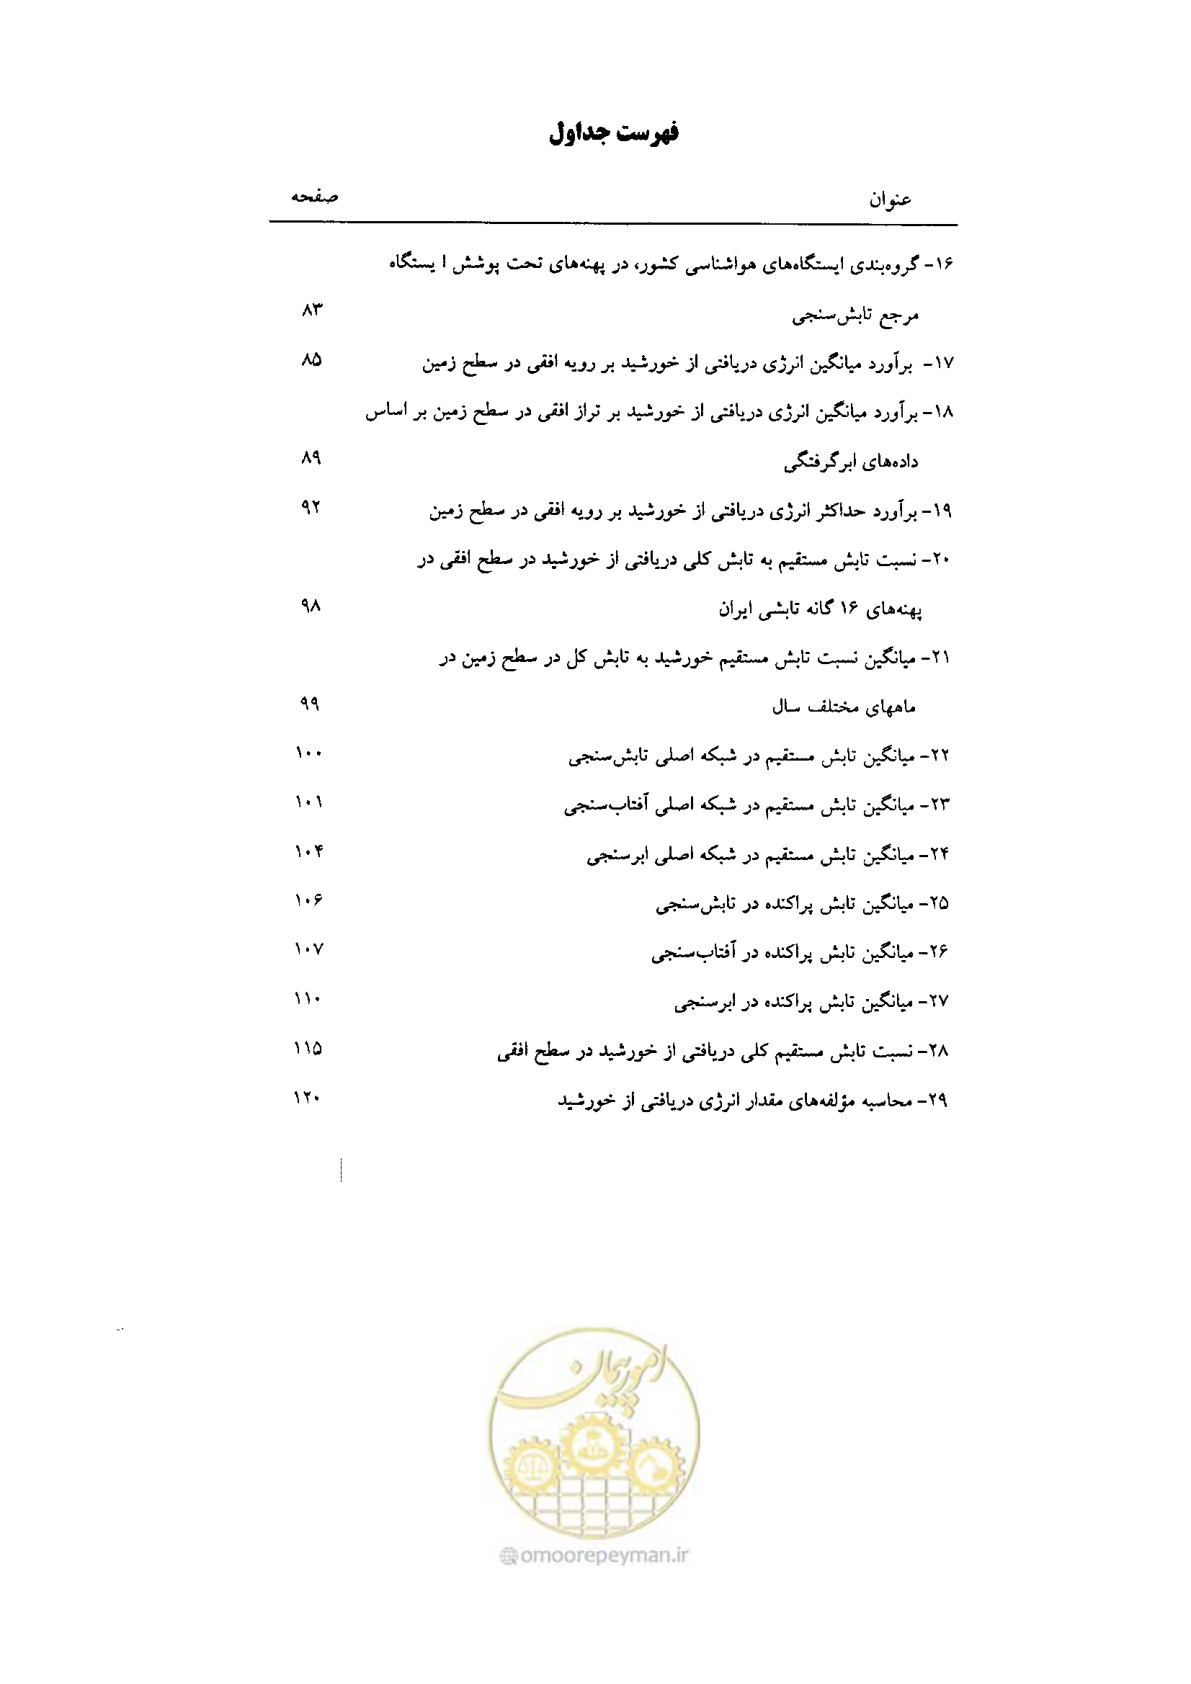 فهرست جداول
عنوان صفحه
۱۶- گروه‌بندی ایستگاه‌های هواشناسی کشور، در پهنه‌های تحت پوشش ا یستگاه
مرجع تابش‌سنجی ۸۳
۱۷- برآورد میانگین انرژی دریافتی از خورشید بر رویه افقی در سطح زمین ۸۵
۱۸- برآورد میانگین انرژی دریافتی از خورشید بر تراز افقی در سطح زمین بر اساس
داده‌های ابرگرفتگی ۸۹
۱۹- برآورد حداکثر انرژی دریافتی از خورشید بر رویه افقی در سطح زمین ۹۲
۲۰- نسبت تابش مستقیم به تابش کلی دریافتی از خورشید در سطح افقی در
پهنه‌های ۱۶ گانه تابشی ایران ۹۸
۲۱- میانگین نسبت تابش مستقیم خورشید به تابش کل در سطح زمین در
ماههای مختلف سال ۹۹
۲۲- میانگین تابش مستقیم در شبکه اصلی تابش‌سنجی ۱۰۰
۲۳- میانگین تابش مستقیم در شبکه اصلی آفتاب‌سنجی ۱۰۱
۲۴- میانگین تابش مستقیم در شبکه اصلی ابرسنجی ۱۰۴
۲۵- میانگین تابش پراکنده در تابش‌سنجی ۱۰۶
۲۶- میانگین تابش پراکنده در آفتاب‌سنجی ۱۰۷
۲۷- میانگین تابش پراکنده در ابرسنجی ۱۱۰
۲۸- نسبت تابش مستقیم کلی دریافتی از خورشید در سطح افقی ۱۱۵
۲۹- محاسبه مؤلفه‌های مقدار انرژی دریافتی از خورشید ۱۲۰
امور پیمان
omoorepeyman.ir